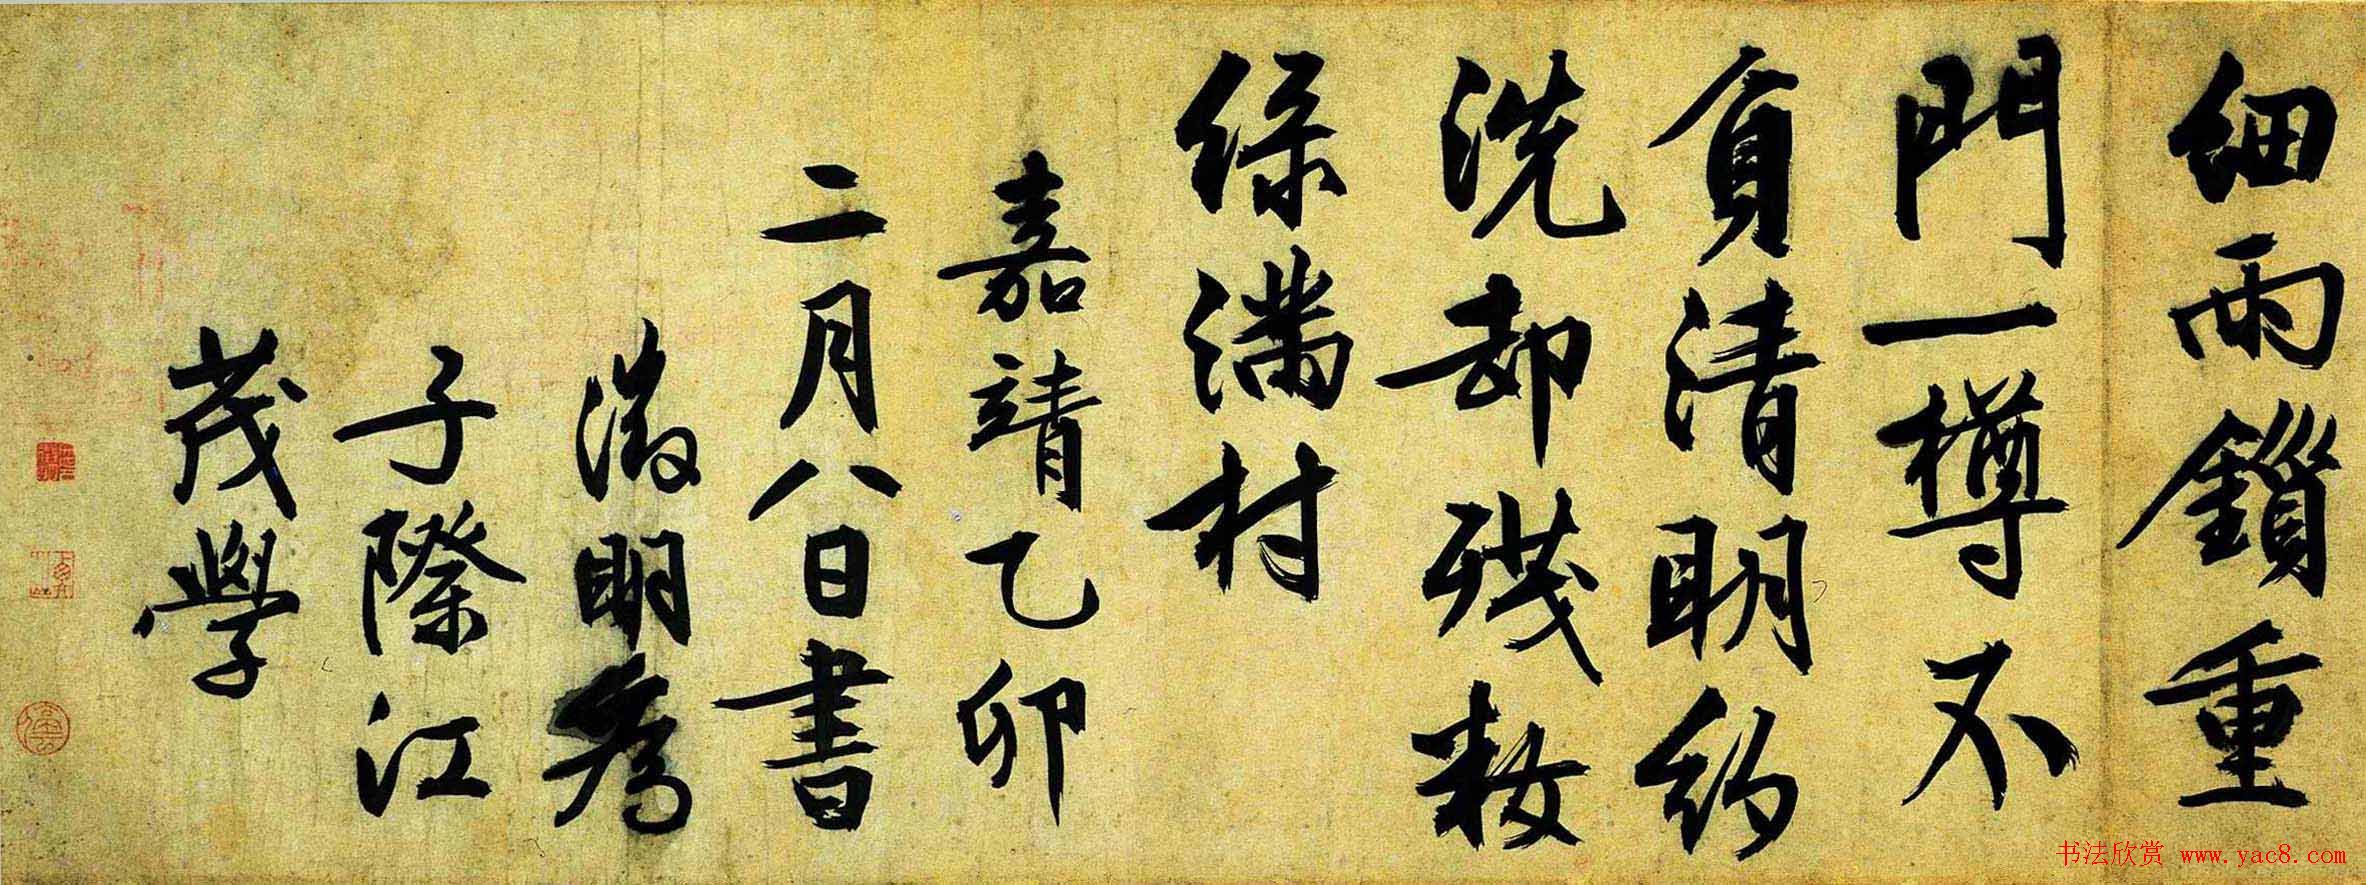 細雨鎖重
門一樽不
負清明約
洗却殘妝
綠滿村
嘉靖乙卯
二月八日書
徵明為
子際江
茂學
书法欣赏 www.yac8.com